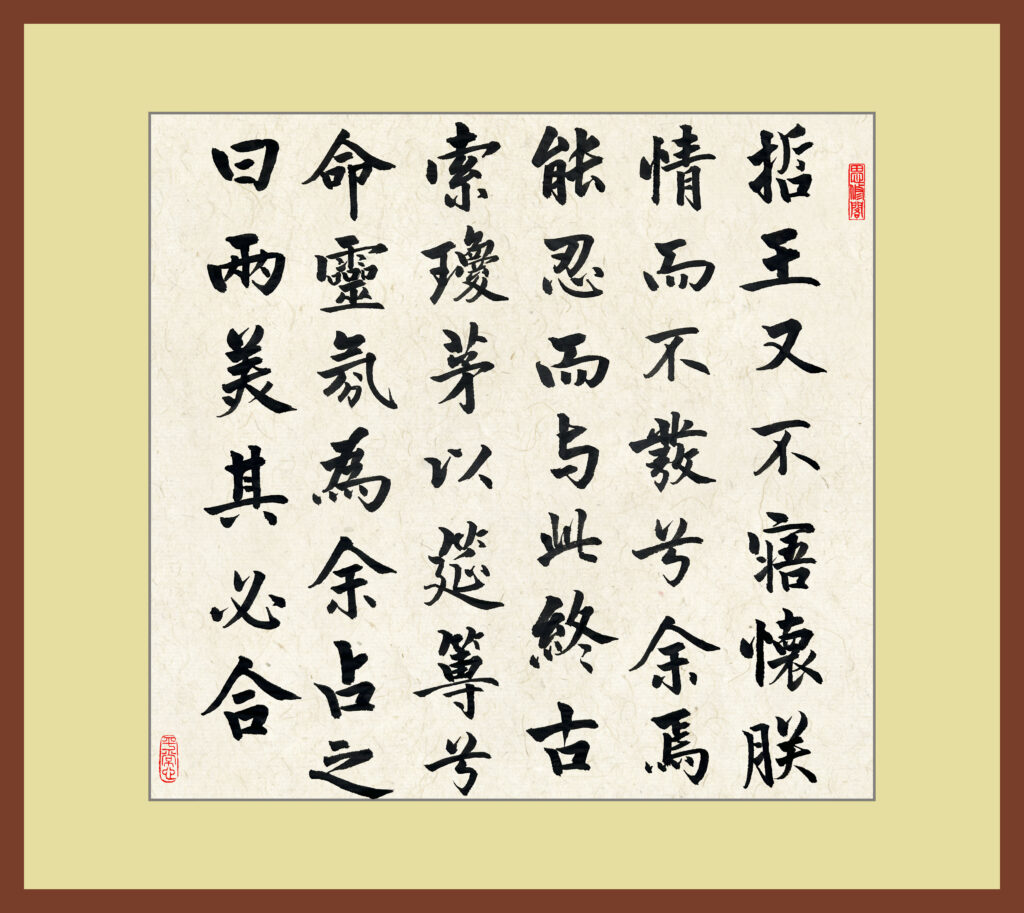 思修閣
哲王又不寤懷朕
情而不發兮余焉
能忍而与此終古
索瓊茅以筳篿兮
命靈氛為余占之
曰兩美其必合
平常心